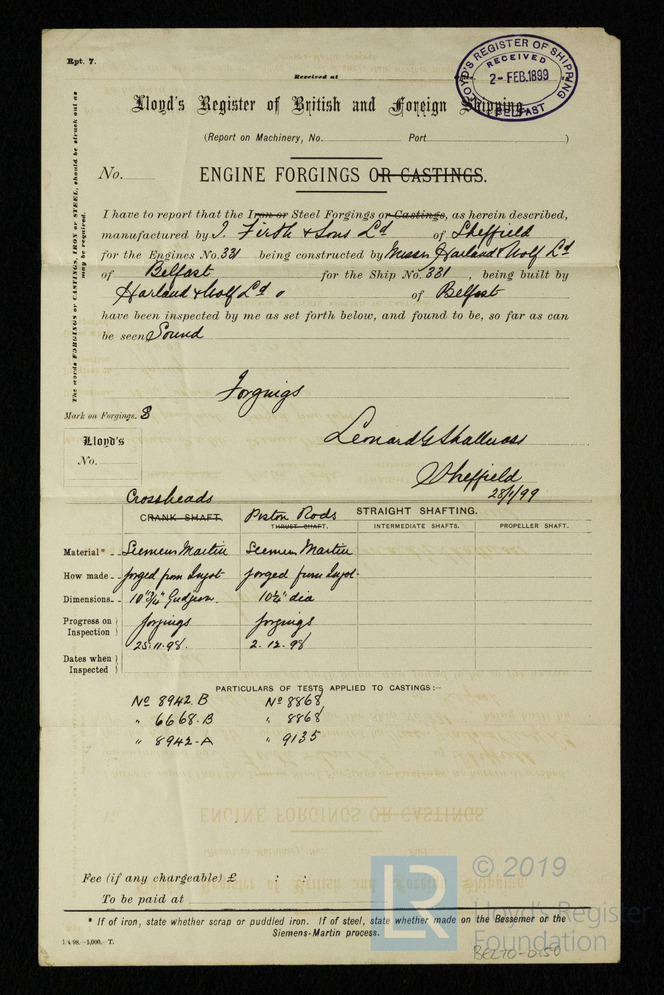 Rpt. 7.
Received at
LLOYD'S REGISTER OF SHIPPING
RECEIVED
2- FEB.1899
BELFAST
Lloyd's Register of British and Foreign Shipping.
(Report on Machinery, No. Port )
No. ENGINE FORGINGS OR CASTINGS.
The words FORGINGS or CASTINGS, IRON or STEEL, should be struck out as
may be required.
I have to report that the Iron or Steel Forgings or Castings, as herein described,
manufactured by J. Firth & Sons Ld of Sheffield
for the Engines No. 331 being constructed by Messrs Harland & Wolf Ld
of Belfast for the Ship No. 331 , being built by
Harland & Wolf Ld of Belfast
have been inspected by me as set forth below, and found to be, so far as can
be seen Sound
Forgings
Mark on Forgings.
Lloyd's
No.
Leonard G Shallcross
Sheffield
28/1/99
Crossheads Piston Rods STRAIGHT SHAFTING.
CRANK SHAFT. THRUST SHAFT. INTERMEDIATE SHAFTS. PROPELLER SHAFT.
Material* Siemens Martin Siemens Martin
How made forged from Ingot forged from Ingot.
Dimensions 10 3/4" Gudgeon. 10 1/4" dia
Progress on Inspection } forgings forgings
Dates when Inspected } 25.11.98. 2.12.98
PARTICULARS OF TESTS APPLIED TO CASTINGS:—
No 8942.B No 8868
" 6668.B " 8868
" 8942-A " 9135
Fee (if any chargeable) £ : :
To be paid at
* If of iron, state whether scrap or puddled iron. If of steel, state whether made on the Bessemer or the
Siemens-Martin process.
1/4/98.—1,000.—T.
LR
© 2019
Lloyd's Register
Foundation
BEL70-0150